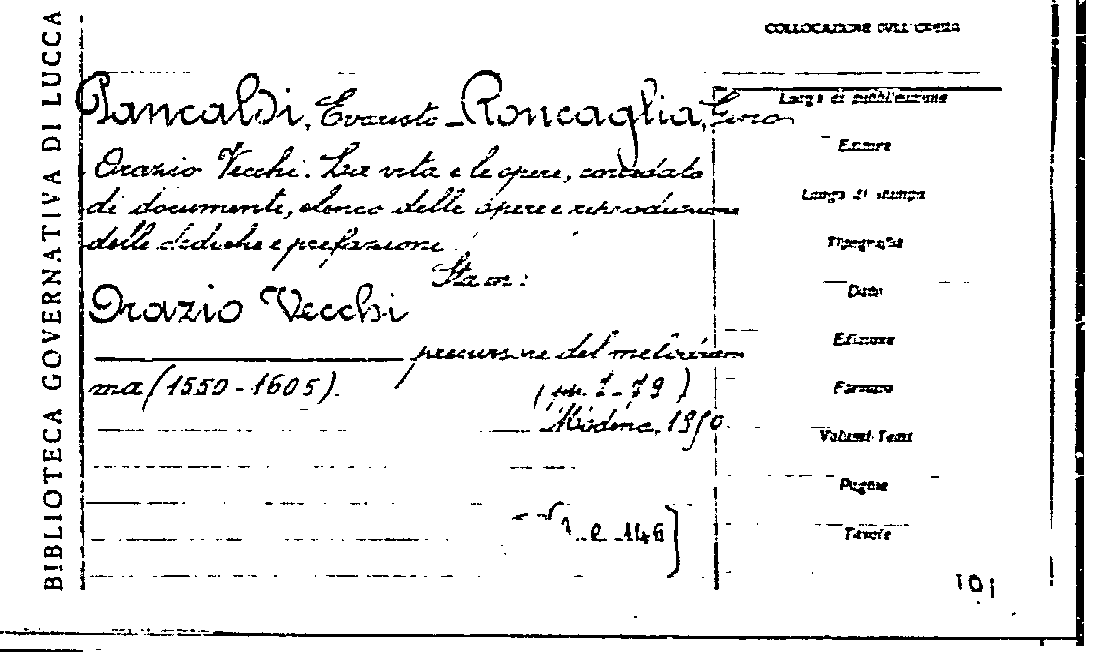 BIBLIOTECA GOVERNATIVA DI LUCCA
COLLOCAZIONE DELL'OPERA
Pancaldi, Evaristo - Roncaglia, Gino
Orazio Vecchi. La vita e le opere, corredato
di documenti, elenco delle opere e riproduzione
delle dediche e prefazioni.
Sta in:
Orazio Vecchi
precursore del melodram
ma (1550-1605).
(pp. 7-79)
Modena, 1950.
e 146]
Luogo di pubblicazione
Editore
Luogo di stampa
Tipografia
Data
Edizione
Formato
Volumi-Tomi
Pagine
Tavole
101